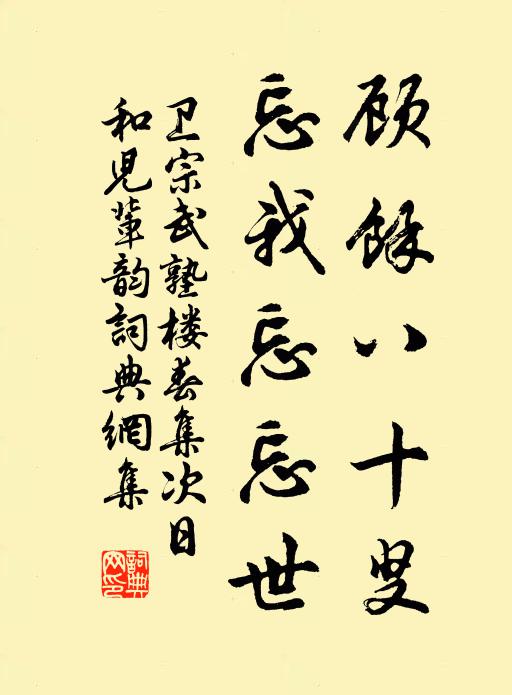 顾餘八十叟
忘我忘忘世
卫宗武塾楼春集次日
和児輩韵詞典網集
詞典網印